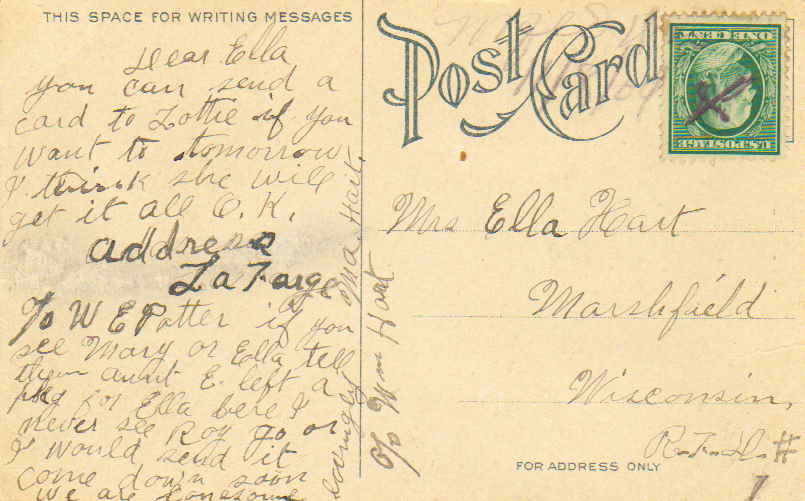 THIS SPACE FOR WRITING MESSAGES
Dear Ella
you can send a
card to Lottie if you
want to tomorrow
I think she will
get it all O.K.
address
La Farge
To W E Potter if you
see Mary or Ella tell
them aunt E. left a
pkg for Ella here I
never see Roy go or
I would send it
come down soon
we are lonesome
lovingly Ma Hait.
Post Card
ONE CENT
U.S. POSTAGE
Mrs Ella Hart
Marshfield
Wisconsin,
R.F.D. #
1
c/o Wm Hart
FOR ADDRESS ONLY